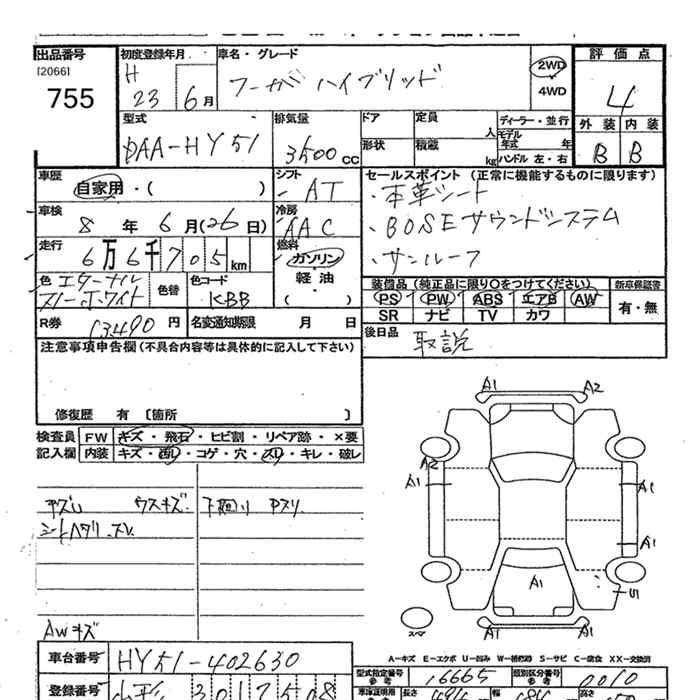 出品番号 初度登録年月 車名・グレード 評価点
[2066] H 2WD
755 23 6月 フーガ ハイブリッド 4WD 4
型式 排気量 ドア 定員 人 ディーラー・並行 外装 内装
DAA-HY51 3500cc 形状 積蔵 kg モデル年式 年 B B
ハンドル 左・右
車歴 シフト セールスポイント(正常に機能するものに限ります)
自家用・( ) AT ・本革シート
車検 8年 6月(26日) 冷房 AAC ・BOSEサウンドシステム
走行 6万6千705km 燃料 ガソリン ・サンルーフ
色 エターナル 色替 色コード 軽油・ 装備品(純正品に限り○をつけてください) 新車保証書
スノーホワイト KBB ( ) PS PW ABS エアB AW 有・無
SR ナビ TV カワ
R券 13490円 名変通知期限 月 日 後日品 取説
注意事項申告欄(不具合内容等は具体的に記入して下さい)
修復歴 有 〔箇所 〕
検査員 FW キズ・飛石・ヒビ割・リペア跡・×要
記入欄 内装 キズ・汚レ・コゲ・穴・スレ・キレ・破レ
A1 A2
A2
A1 A1
A1
A1
U1
A1 A1
スペア
ウスキズ 下廻り
シートヘタリ.スレ
AWキズ
A-キズ E-エクボ U-凹み W-補修跡 S-サビ C-腐食 XX-交換済
車台番号 HY51-402630 型式指定番号 参考 16665 類別区分番号 参考 0010
登録番号 301 車庫証明用 参考 長さ 幅 184 高さ